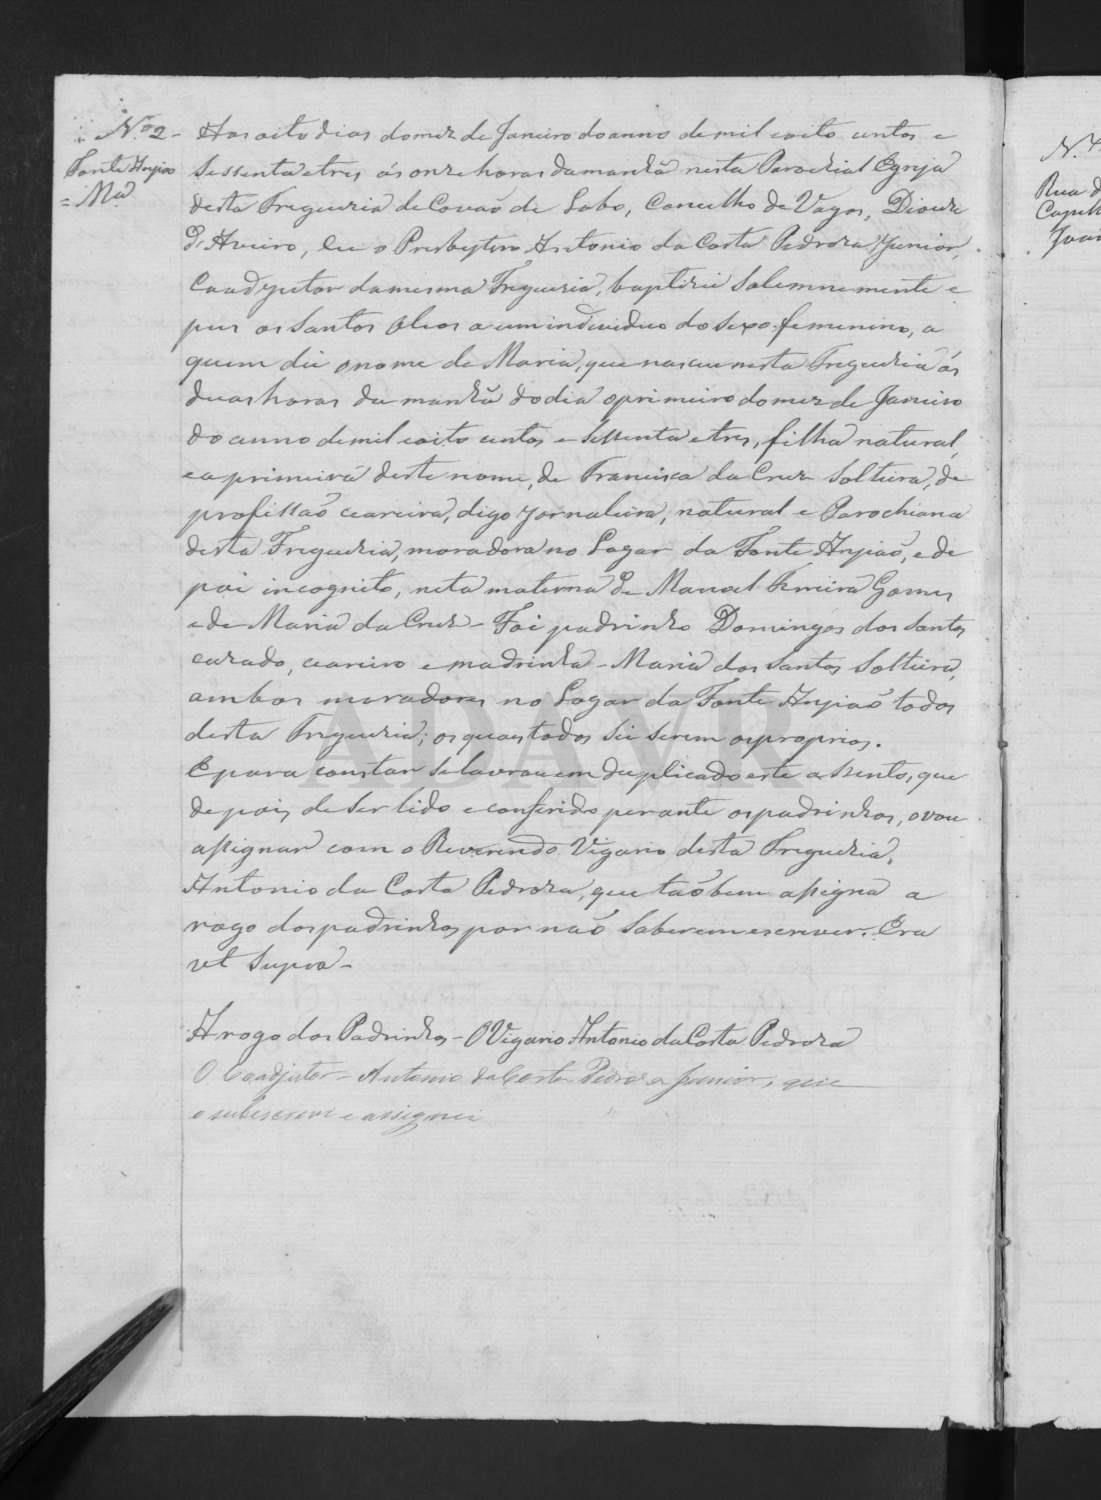 Nº 2 -
Fonte Anjiaõ
= Mª
Aos oito dias do mez de Janeiro do anno de mil e oito centos e
sessenta e tres ás onze horas da manhã nesta Parochial Egreja
desta Freguezia de Covaõ de Lobo, Concelho de Vagos, Diocese
d'Aveiro, Eu o Presbytero Antonio da Costa Pedroza Junior,
Coadjutor da mesma Freguezia, baptizei solemnemente e
puz os Santos Oleos a um individuo do sexo femenino, a
quem dei o nome de Maria, que nasceu nesta Freguezia ás
duas horas da manhã do dia o primeiro do mez de Janeiro
do anno de mil e oito centos e sessenta e tres, filha natural,
e a primeira deste nome, de Francisca da Cruz solteira, de
profissaõ ceareira, digo jornaleira, natural e Parochiana
desta Freguezia, moradora no Lugar da Fonte Anjiaõ, e de
pai incognito, neta materna de Manoel Ferreira Gomes
e de Maria da Cruz - Foi padrinho Domingos dos Santos
cazado, ceareiro e madrinha - Maria dos Santos Solteira,
ambos moradores no Lugar da Fonte Anjiaõ todos
desta Freguezia; os quaes todos sei serem os proprios.
E para constar se lavrou em duplicado este assento, que
depois de ser lido e conferido perante os padrinhos, o vou
assignar com o Reverendo Vigario desta Freguezia,
Antonio da Costa Pedroza, que taõbem assigna a
rogo dos padrinhos por naõ saberem escrever. Era
ut supra -
A rogo dos Padrinhos - O Vigario Antonio da Costa Pedroza
O Coadjutor - Antonio da Costa Pedroza Junior, que
o subscrevi e assignei
ADAVR
N.
Rua d
Capell